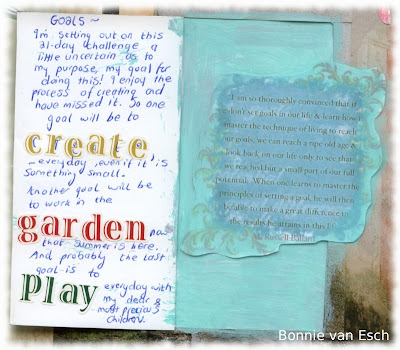 GOALS ~
I'm setting out on this
21-day challenge a
little uncertain as to
my purpose, my goal for
doing this! I enjoy the
process of creating and
have missed it. So one
goal will be to
create
~ everyday, even if it's
something small.
Another goal will be
to work in the
garden now
that summer is here.
And probably the last
goal is to
play everyday with
my dear &
most precious
children.
I am so thoroughly convinced that if
we don't set goals in our life & learn how to
master the technique of living to reach
our goals, we can reach a ripe old age &
look back on our life only to see that
we reached but a small part of our full
potential. When one learns to master the
principles of setting a goal, he will then
be able to make a great difference in
the results he attains in this life.
M. Russell Ballard
Bonnie van Esch